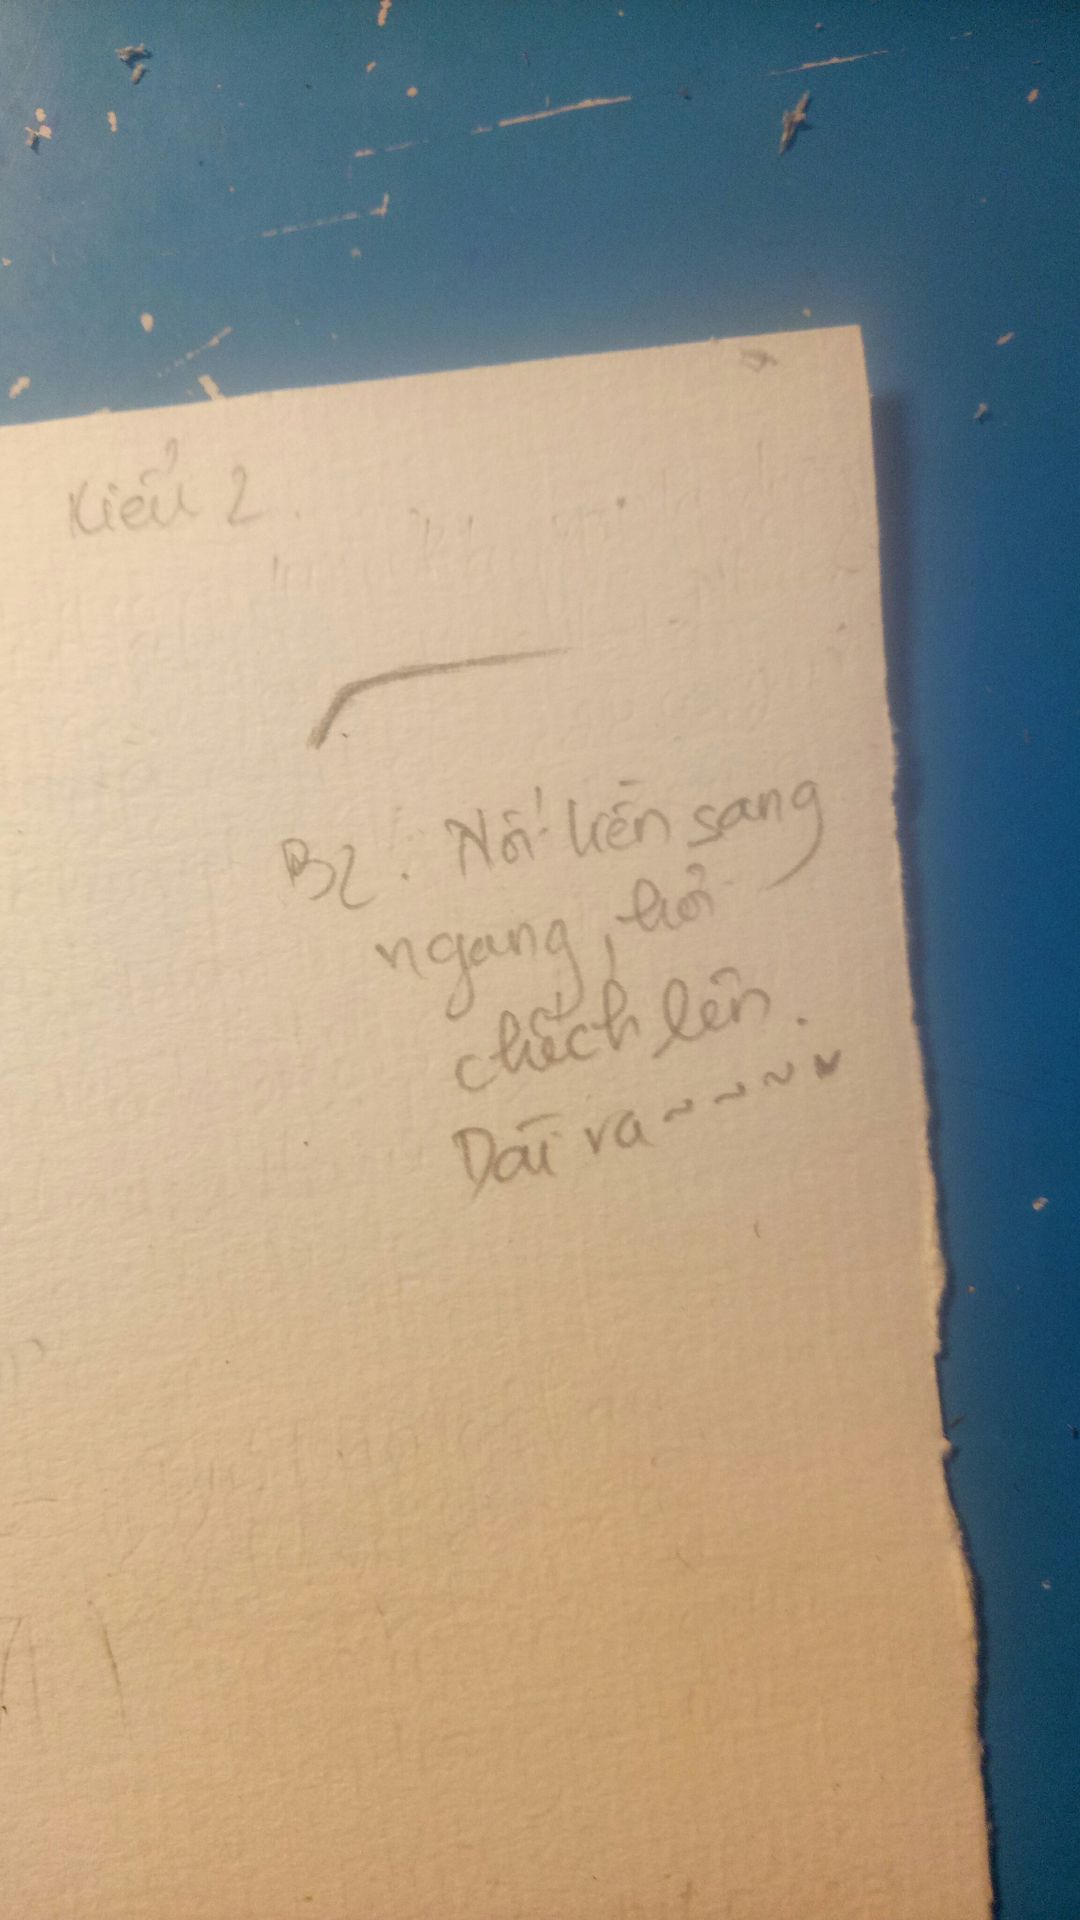 Kiểu 2
B2: Nối liền sang
ngang, hơi
chếch lên.
Dài ra ~ ~ ~ ~